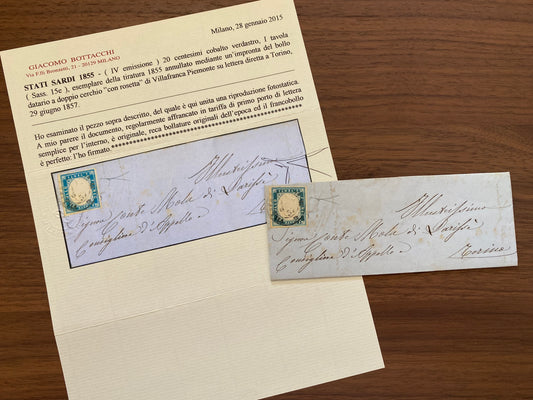 Milano, 28 gennaio 2015
GIACOMO BOTTACCHI
Via F.lli Bronzetti, 21 - 20129 MILANO
STATI SARDI 1855 - ( IV emissione ) 20 centesimi cobalto verdastro, I tavola
( Sass. 15e ), esemplare della tiratura 1855 annullato mediante un'impronta del bollo
datario a doppio cerchio "con rosetta" di Villafranca Piemonte su lettera diretta a Torino,
29 giugno 1857.
Ho esaminato il pezzo sopra descritto, del quale è qui unita una riproduzione fotostatica.
A mio parere il documento, regolarmente affrancato in tariffa di primo porto di lettera
semplice per l'interno, è originale, reca bollature originali dell'epoca ed il francobollo
è perfetto: l'ho firmato.
Illustrissimo
Signor Conte Mola di Larissé
Consigliere d'Appello
Illustrissimo
Signor Conte Mola di Larissé
Consigliere d'Appello
Torino